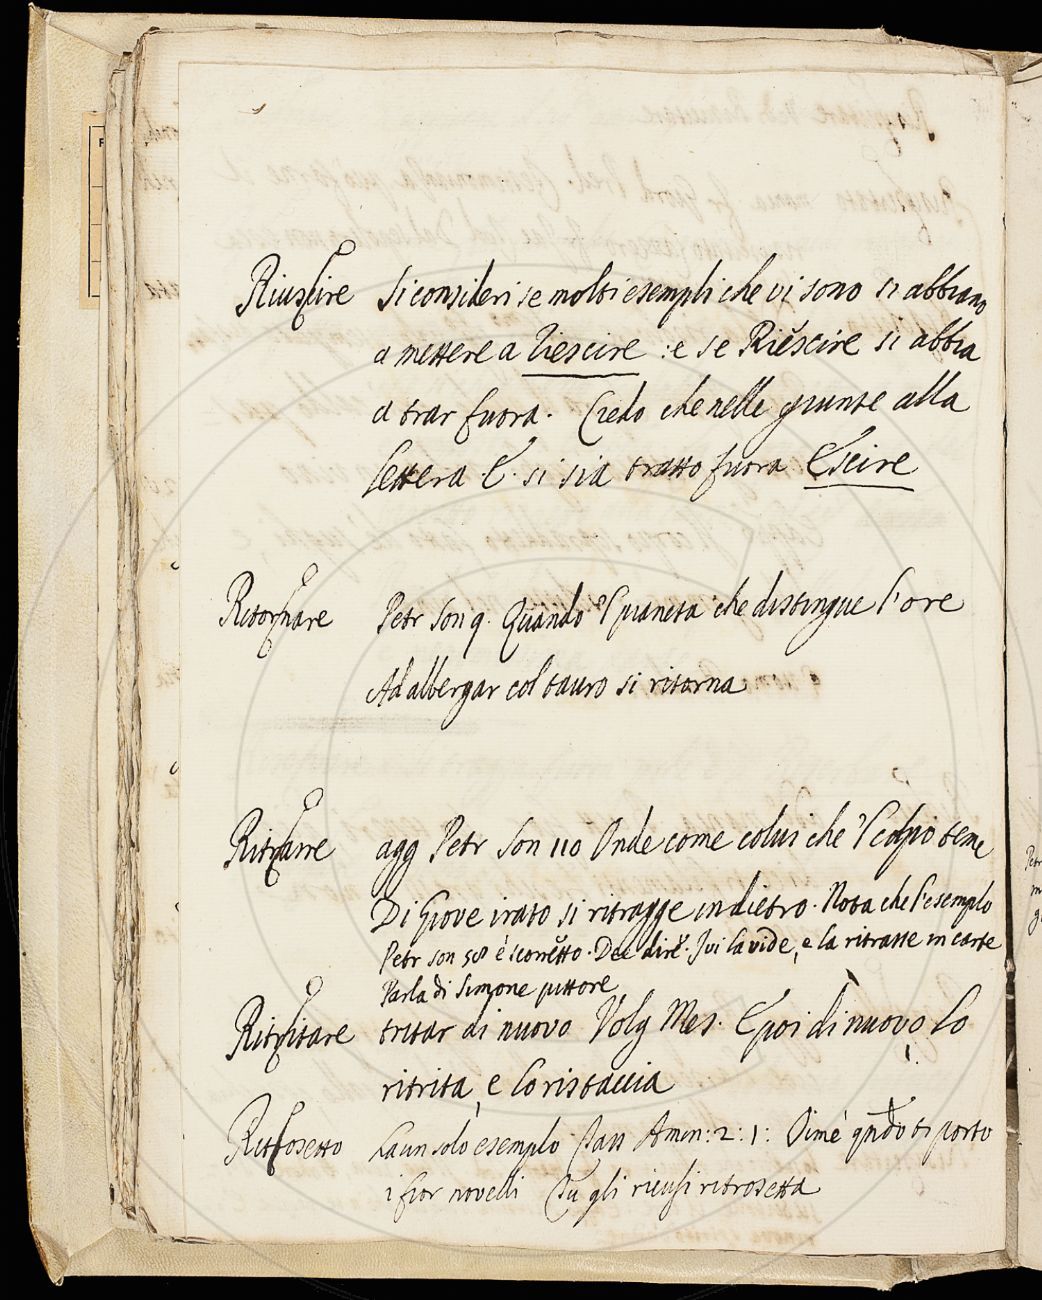 Riuscire Si consideri se molti esempli che vi sono si abbiano
a mettere a Riescire : e se Riescire si abbia
a trar fuora. Credo che nelle giunte alla
lettera E. si sia tratto fuora Escire
Ritornare Petr Son 9. Quando 'l pianeta che distingue l'ore
Ad albergar col tauro si ritorna
Ritrarre agg Petr Son 110 Onde come colui che 'l colpo teme
Di Giove irato si ritragge indietro. Nota che l'esemplo
Petr son 58 è scorretto. Dee dire. Ivi la vide, e la ritratte in carte
Parla di Simone pittore
Ritritare tritar di nuovo Volg Mes. E poi di nuovo lo
ritrita, e lo ristaccia
Ritrosetto Ha un solo esemplo Tass Amin: 2: 1: Oimè qndo ti porto
i fior novelli Tu gli ricusi ritrosetta